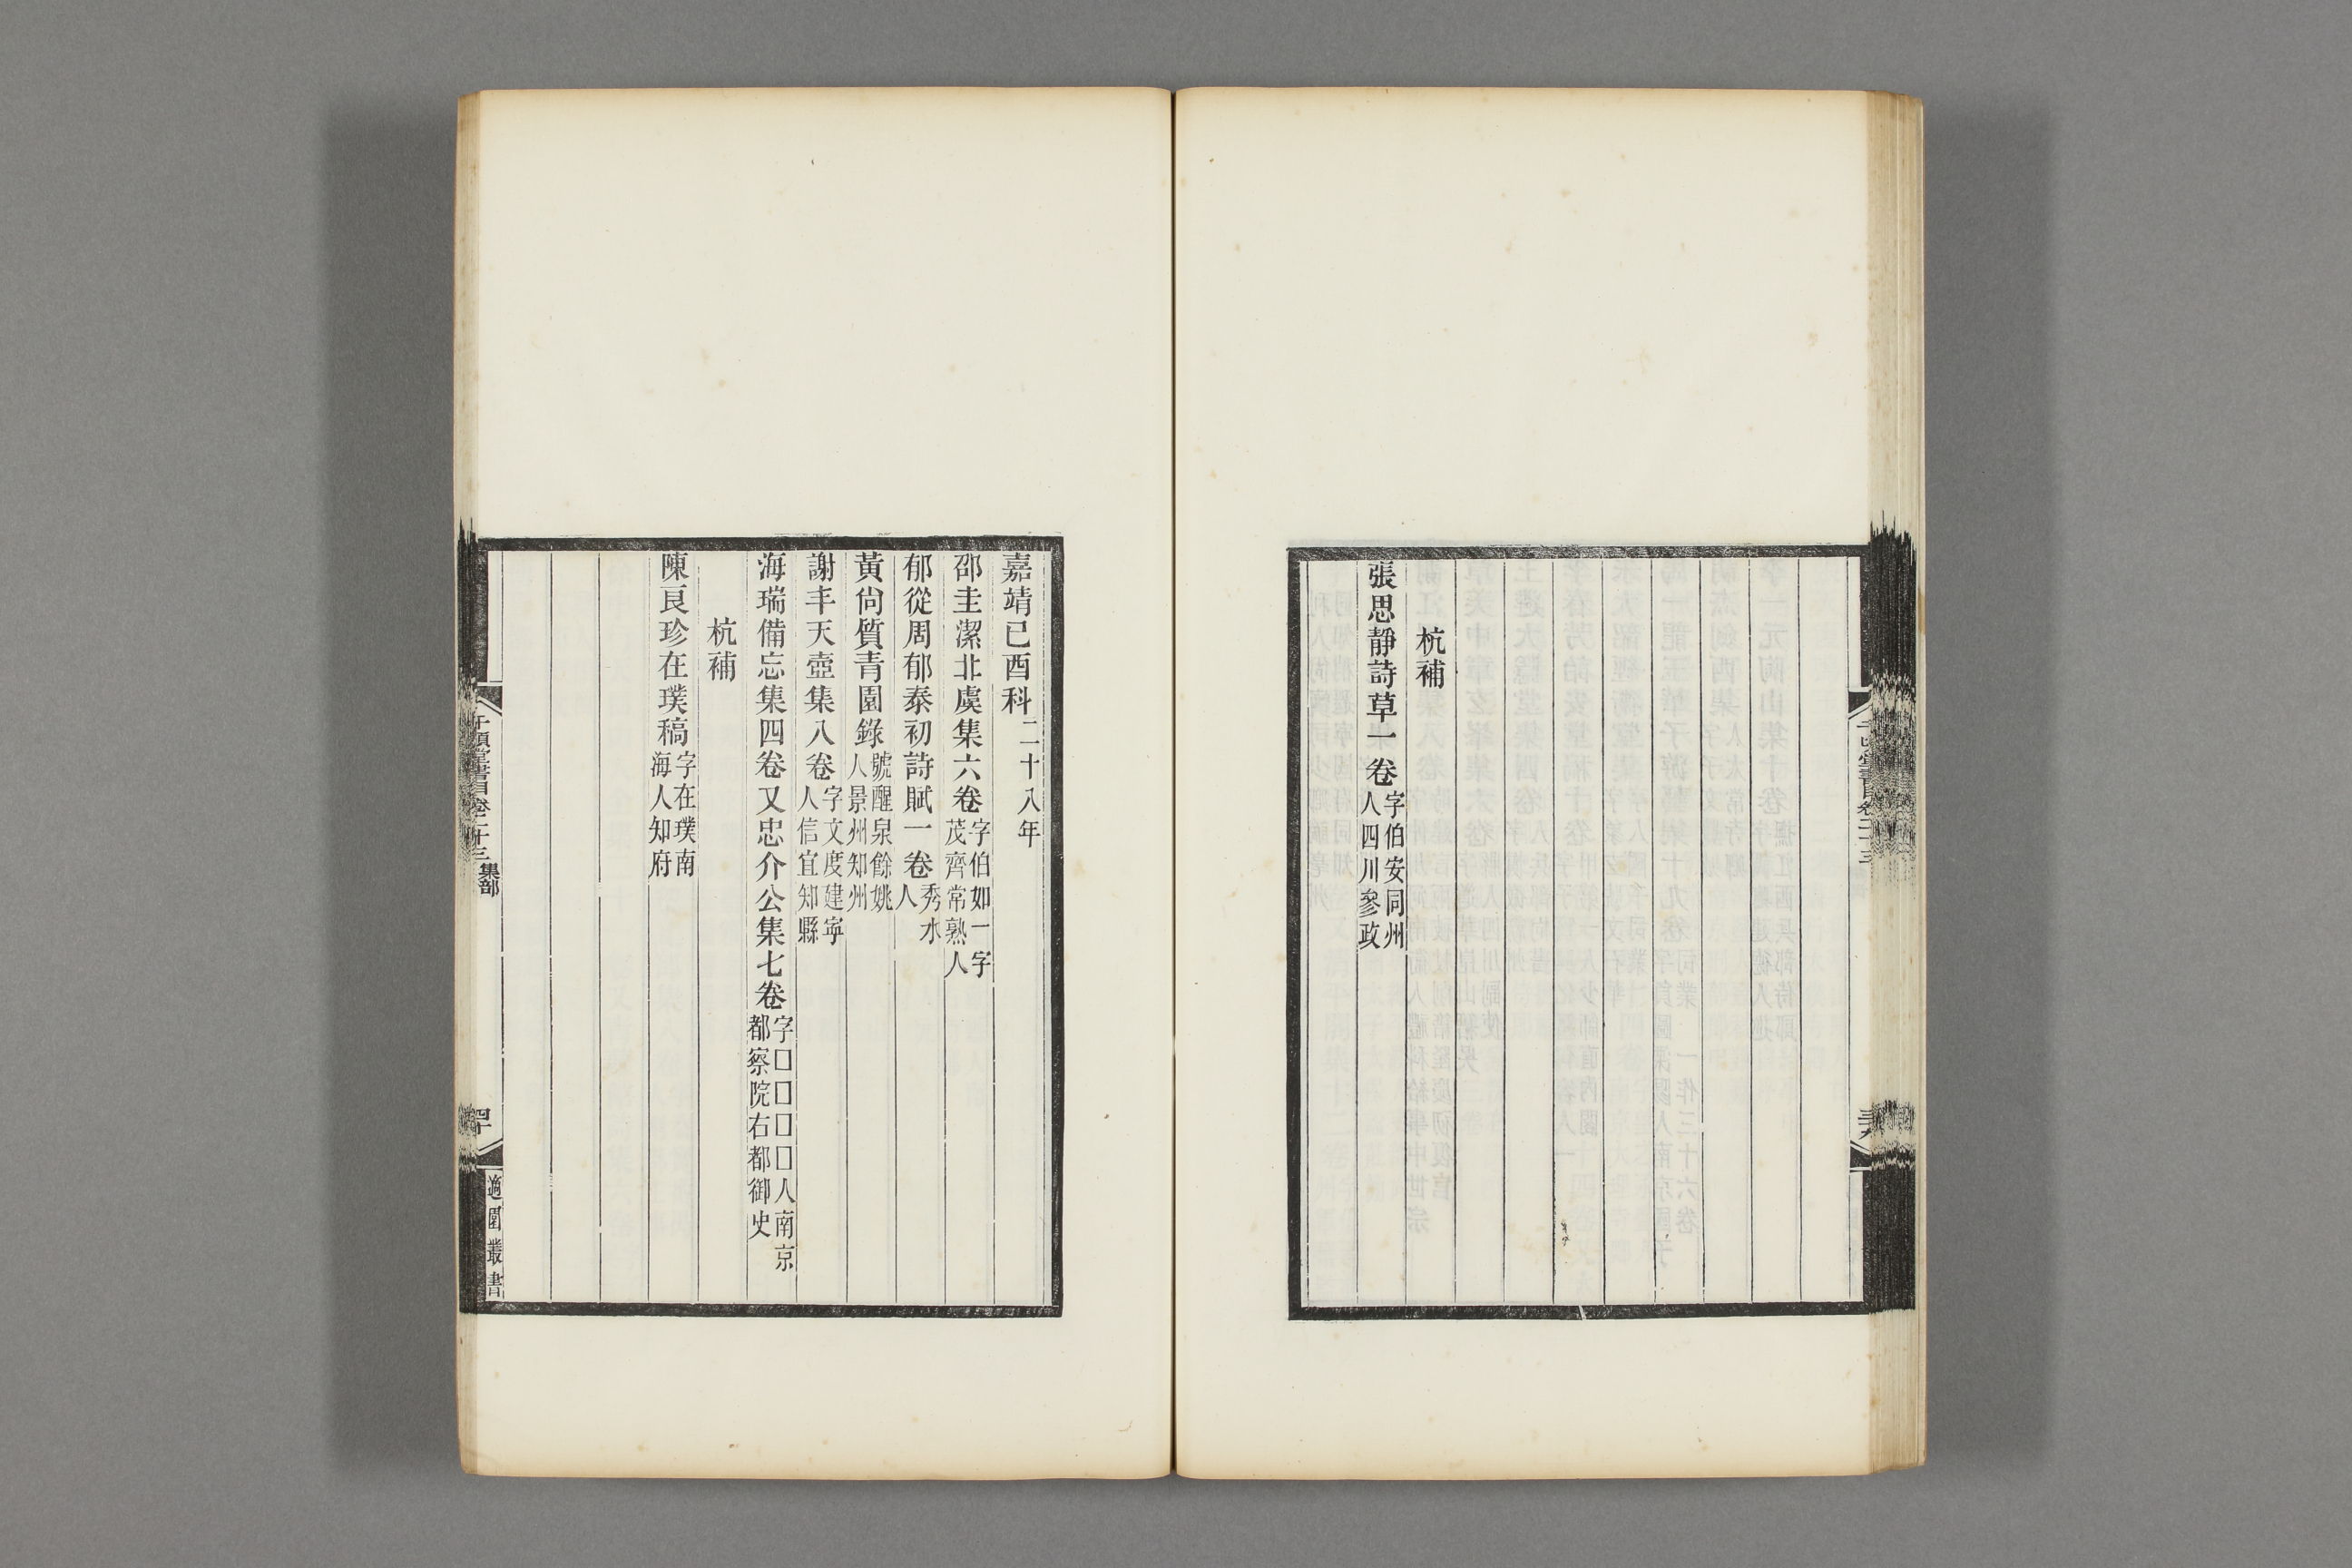 杭補
張思靜詩草一卷字伯安同州人四川參政
嘉靖己酉科二十八年
邵圭潔北虞集六卷字伯如一字茂齊常熟人
郁從周郁泰初詩賦一卷秀水人
黃尙質青園錄號醒泉餘姚人景州知州
謝丰天壺集八卷字文度建寧人信宜知縣
海瑞備忘集四卷又忠介公集七卷字□□□□人南京都察院右都御史
杭補
陳艮珍在璞稿字在璞南海人知府
千頃堂書目卷二十三 集部
四十
適園叢書